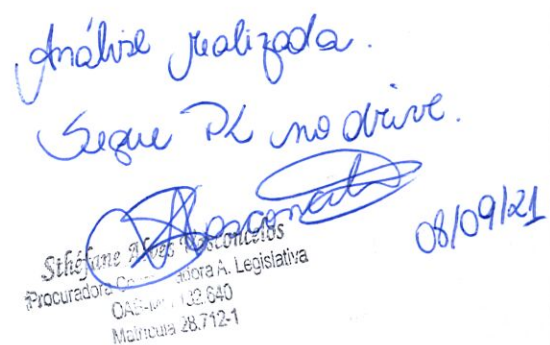 Análise realizada.
Segue PL no drive.
08/09/21
Sthéfane Alves Vasconcelos
Procuradora A. Legislativa
132.640
Matrícula 28.712-1